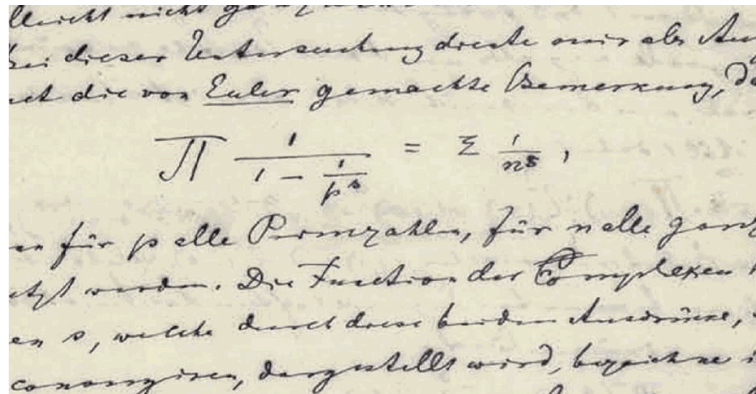 vielleicht nicht ganz
bei dieser Untersuchung diente mir als
die von Euler gemachte Bemerkung, da
∏ 1/(1 − 1/p^s) = Σ 1/n^s ,
für p alle Primzahlen, für n alle ganz
werden. Die Function der complexen
s, welche durch diese beiden Ausdrücke,
dargestellt wird, bezeichne i